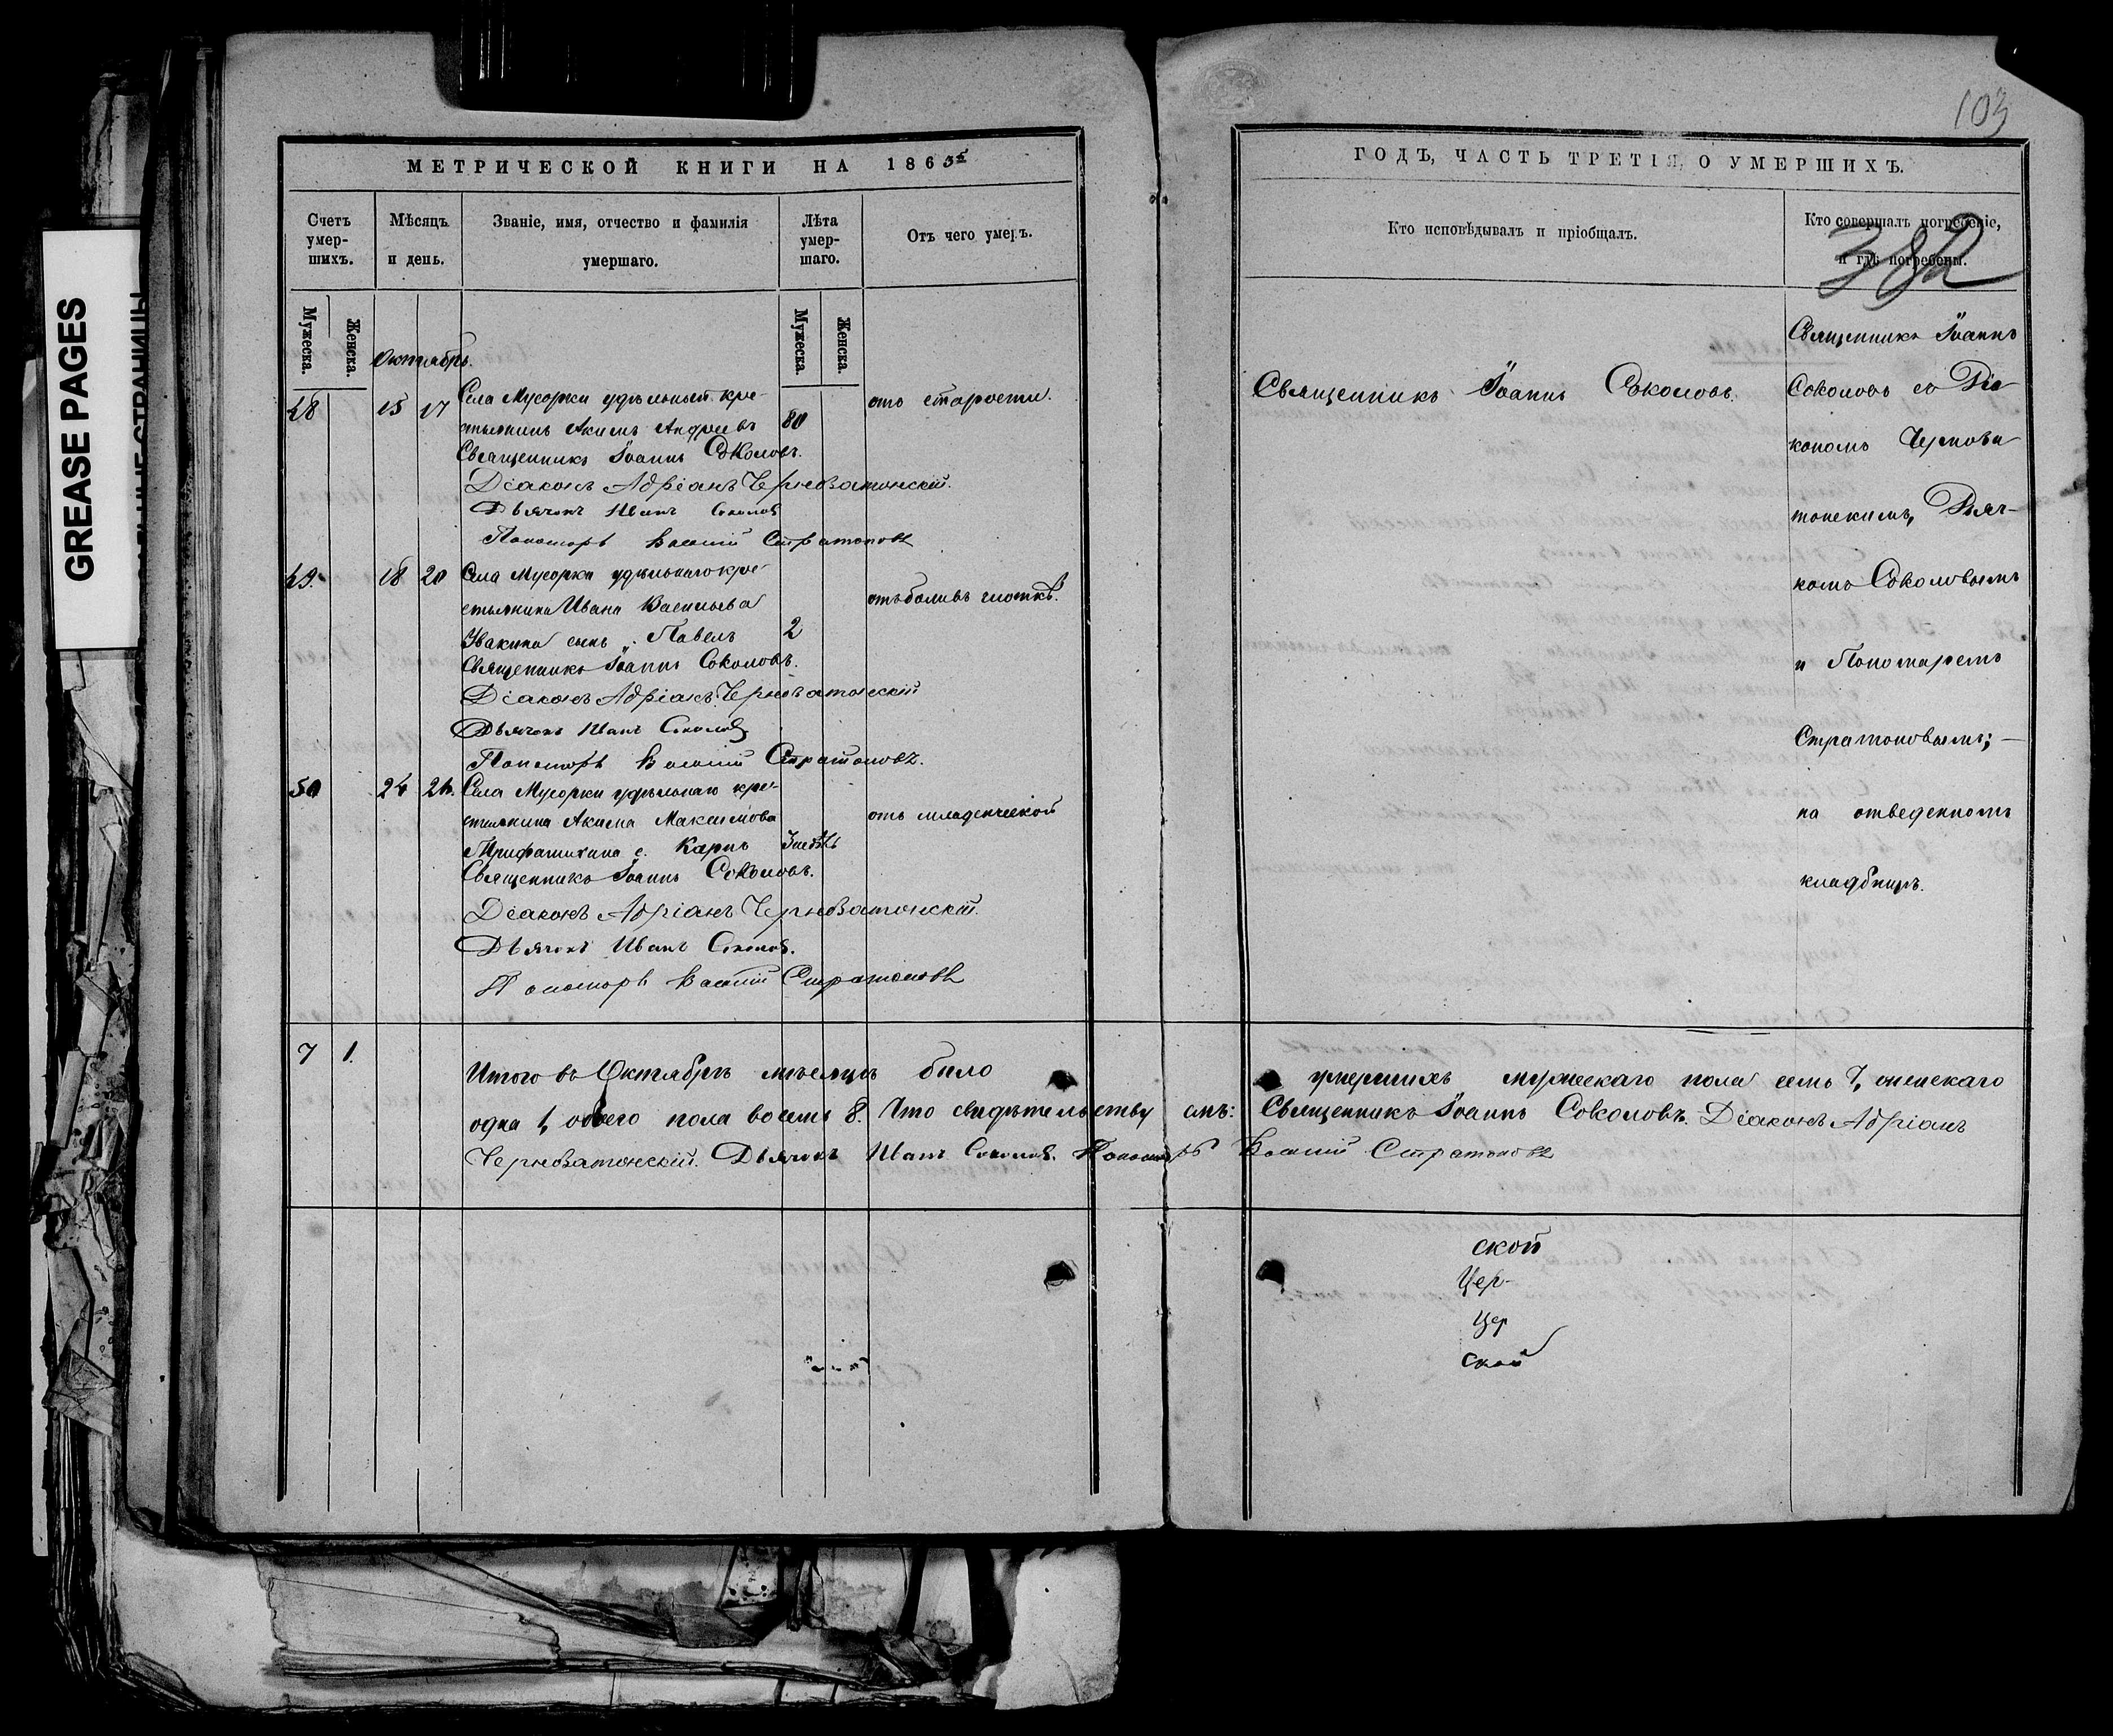 GREASE PAGES
МЕТРИЧЕСКОЙ КНИГИ НА 1865й
Счетъ умер-шихъ.
Мѣсяцъ и день.
Званіе, имя, отчество и фамилія умершаго.
Лѣта умер-шаго.
Отъ чего умеръ.
Мужеска.
Женска.
Мужеска.
Женска.
Октябрь.
48 15 17 Села Мусорки удѣльный кре-
стьянинъ Акимъ Андреевъ 80 отъ старости.
Священникъ Іоаннъ Соколовъ.
Діаконъ Адріанъ Черноватонскій.
Дьячокъ Иванъ Соколов
Пономарь Василій Стратоновъ
49. 18 20 Села Мусорки удѣльнаго кре-
стьянина Ивана Васильева отъ боли въ глоткѣ.
сынъ Павелъ 2
Священникъ Іоаннъ Соколовъ.
Діаконъ Адріанъ Черноватонскій
Дьячокъ Иванъ Соколов
Пономарь Василій Стратоновъ.
50 24 26. Села Мусорки удѣльнаго кре-
стьянина Акима Максимова отъ младенческой
с. Карпъ
Священникъ Іоаннъ Соколовъ.
Діаконъ Адріанъ Черноватонскій.
Дьячокъ Иванъ Соколов.
Пономарь Василій Стратоновъ
7 1.
Итого въ Октябрѣ мѣсяцѣ было
одна 1, обоего пола восемь 8. Что свидѣтельству
Черноватонскій. Дьячокъ Иванъ Соколов. Пономарь
103
ГОДЪ, ЧАСТЬ ТРЕТІЯ, О УМЕРШИХЪ.
Кто исповѣдывалъ и пріобщалъ.
Кто совершалъ погребеніе, и гдѣ погребены.
382
Священникъ Іоаннъ Соколовъ.
Священникъ Іоаннъ
Соколовъ съ Діа-
кономъ Чернова-
тонскимъ, Дьяч-
комъ Соколовымъ
и Пономаремъ
Стратоновымъ; —
на отведенномъ
кладбищѣ.
умершихъ мужескаго пола семь 7, женскаго
емъ: Священникъ Іоаннъ Соколовъ. Діаконъ Адріанъ
Василій Стратоновъ
ской
Цер-
Цер
ской